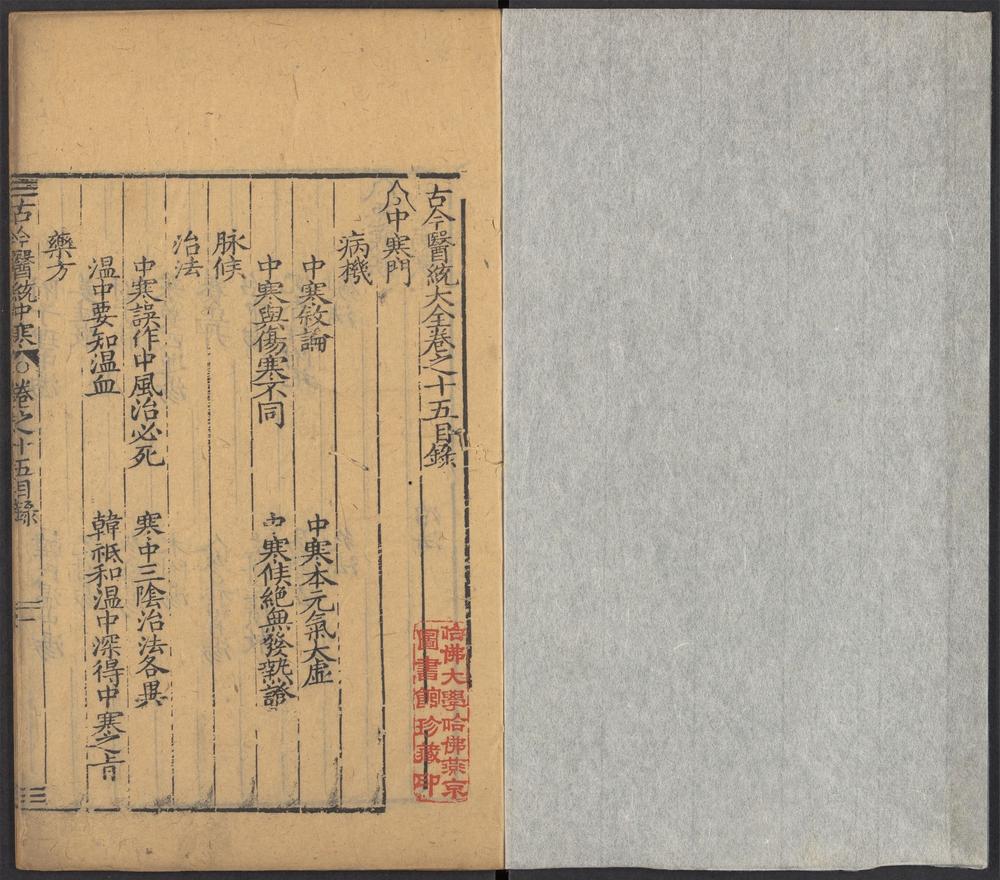 古今醫統大全卷之十五目錄
中寒門
病機
中寒敘論 中寒本元氣大虛
中寒與傷寒不同 中寒候絕無發熱證
脉候
治法
中寒誤作中風治必死 寒中三陰治法各異
温中要知温血 韓祗和温中深得中寒之旨
藥方
古今醫統中寒 卷之十五目錄 一
哈佛大學哈佛燕京
圖書館珍藏印